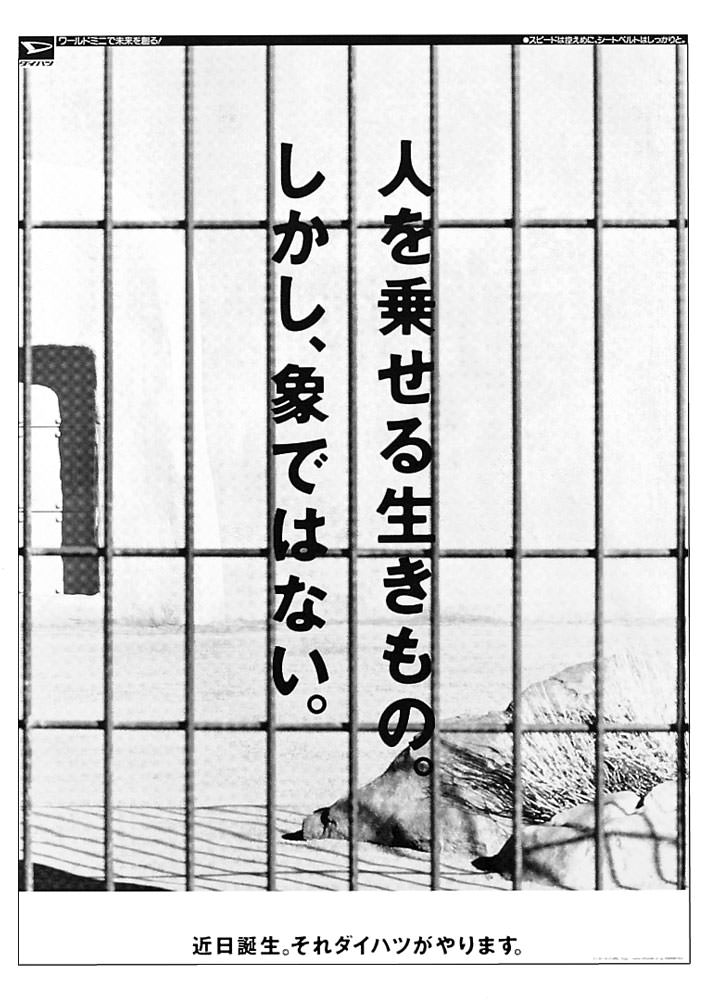 ダイハツ
ワールドミニで未来を創る!
●スピードは控えめに、シートベルトはしっかりと。
人を乗せる生きもの。
しかし、象ではない。
近日誕生。それダイハツがやります。